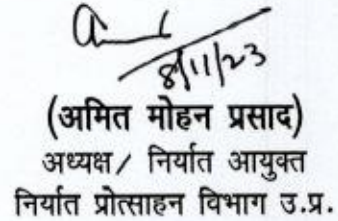 8/11/23
(अमित मोहन प्रसाद)
अध्यक्ष/ निर्यात आयुक्त
निर्यात प्रोत्साहन विभाग उ.प्र.